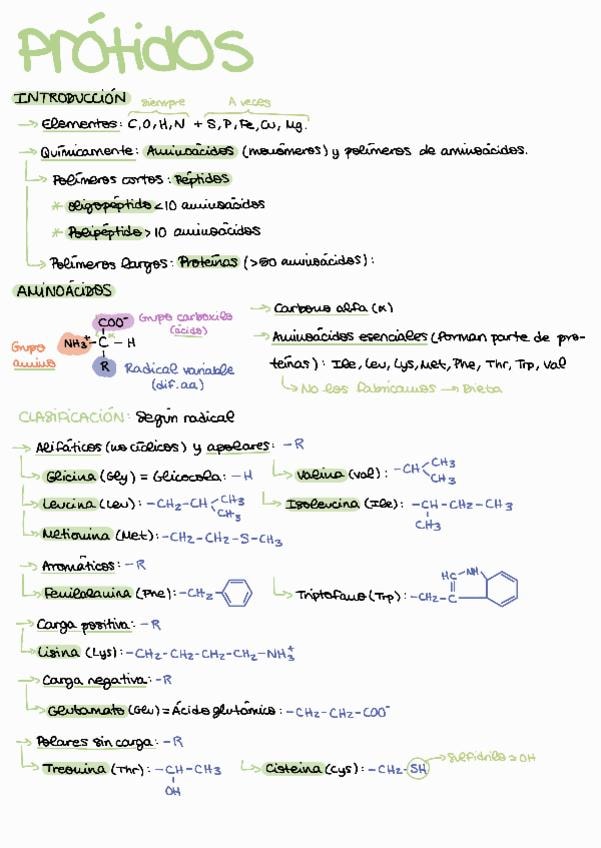 PRÓTIDOS
INTRODUCCIÓN siempre A veces
→ Elementos: C,O,H,N + S,P,Fe,Cu,Mg.
→ Químicamente: Aminoácidos (monómeros) y polímeros de aminoácidos.
↳ Polímeros cortos: Péptidos
* oligopéptido <10 aminoácidos
* Polipéptido >10 aminoácidos
↳ Polímeros largos: Proteínas (>50 aminoácidos):
AMINOÁCIDOS
COO⁻ Grupo carboxilo
(ácido)
Grupo
amino
NH3⁺-C-H
R Radical variable
(dif.aa)
→ Carbono alfa (α)
→ Aminoácidos esenciales (forman parte de pro-
teínas): Ile, Leu, Lys, Met, Phe, Thr, Trp, Val
↳ No los fabricamos → Dieta
CLASIFICACIÓN: Según radical
→ Alifáticos (no cíclicos) y apolares: -R
↳ Glicina (Gly) = Glicocola: -H
↳ Valina (Val): -CH CH3 CH3
↳ Leucina (Leu): -CH2-CH CH3 CH3
↳ Isoleucina (Ile): -CH-CH2-CH3
CH3
↳ Metionina (Met): -CH2-CH2-S-CH3
→ Aromáticos: -R
↳ Fenilalanina (Phe): -CH2-
↳ Triptofano (Trp): -CH2-C HC NH
→ Carga positiva: -R
↳ Lisina (Lys): -CH2-CH2-CH2-CH2-NH3⁺
→ Carga negativa: -R
↳ Glutamato (Glu) = Ácido glutámico: -CH2-CH2-COO⁻
→ Polares sin carga: -R
↳ Treonina (Thr): -CH-CH3
OH
↳ Cisteína (Cys): -CH2-SH → Sulfidrilo ≈ OH